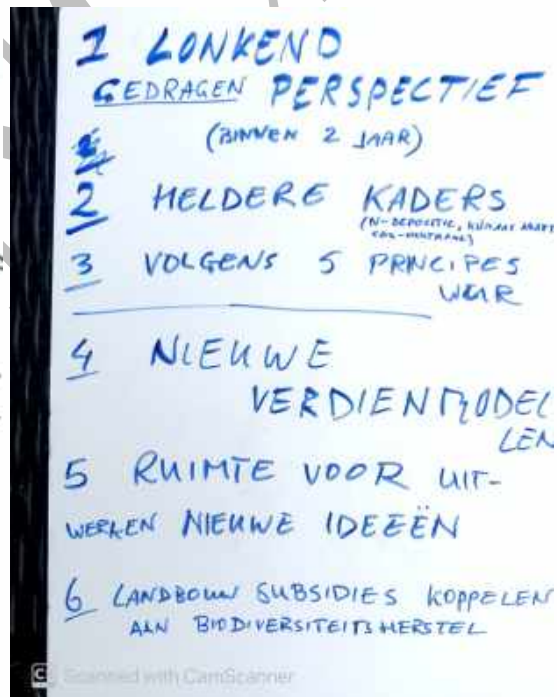 1 LONKEND
GEDRAGEN PERSPECTIEF
(BINNEN 2 JAAR)
2 HELDERE KADERS
(N-DEPOSITIE,
3 VOLGENS 5 PRINCIPES
WUR
4 NIEUWE
VERDIENMODEL
LEN
5 RUIMTE VOOR UIT-
WERKEN NIEUWE IDEEËN
6 LANDBOUW SUBSIDIES KOPPELEN
AAN BIODIVERSITEITSHERSTEL
CS Scanned with CamScanner